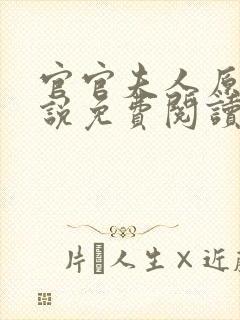 官官夫人原
說免費閱讀
片 人生×近